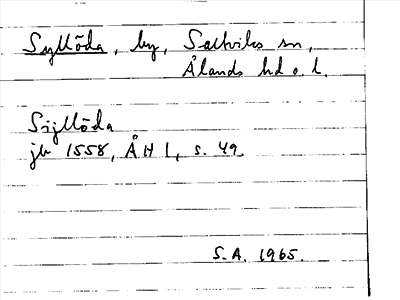 Syllöda, by, Saltviks sn,
Ålands hd o. l.
Sijllöda
jb 1558, ÅH 1, s. 49.
S.A. 1965.